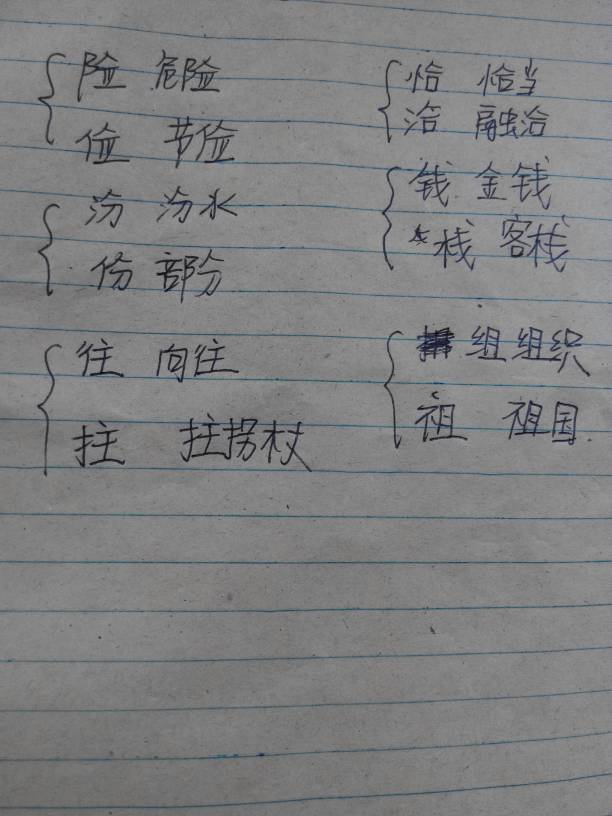 险 危险
俭 节俭
汾 汾水
份 部分
往 向往
拄 拄拐杖
恰 恰当
洽 融洽
钱 金钱
栈 客栈
组 组织
祖 祖国